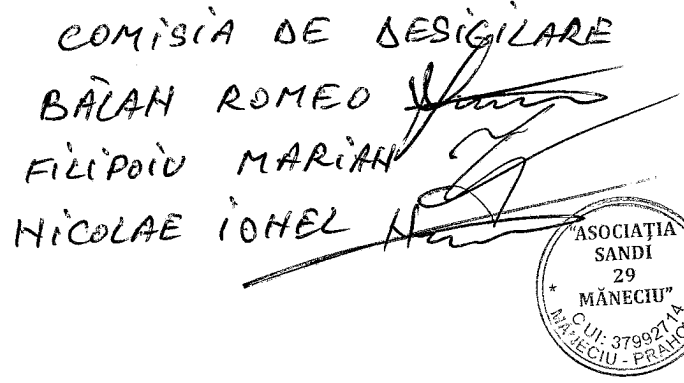 COMISIA DE DESIGILARE
BĂLAN ROMEO
FILIPOIU MARIAN
NICOLAE IONEL
"ASOCIAȚIA
SANDI
29
MĂNECIU"
* CUI: 37992714
MĂNECIU - PRAHO